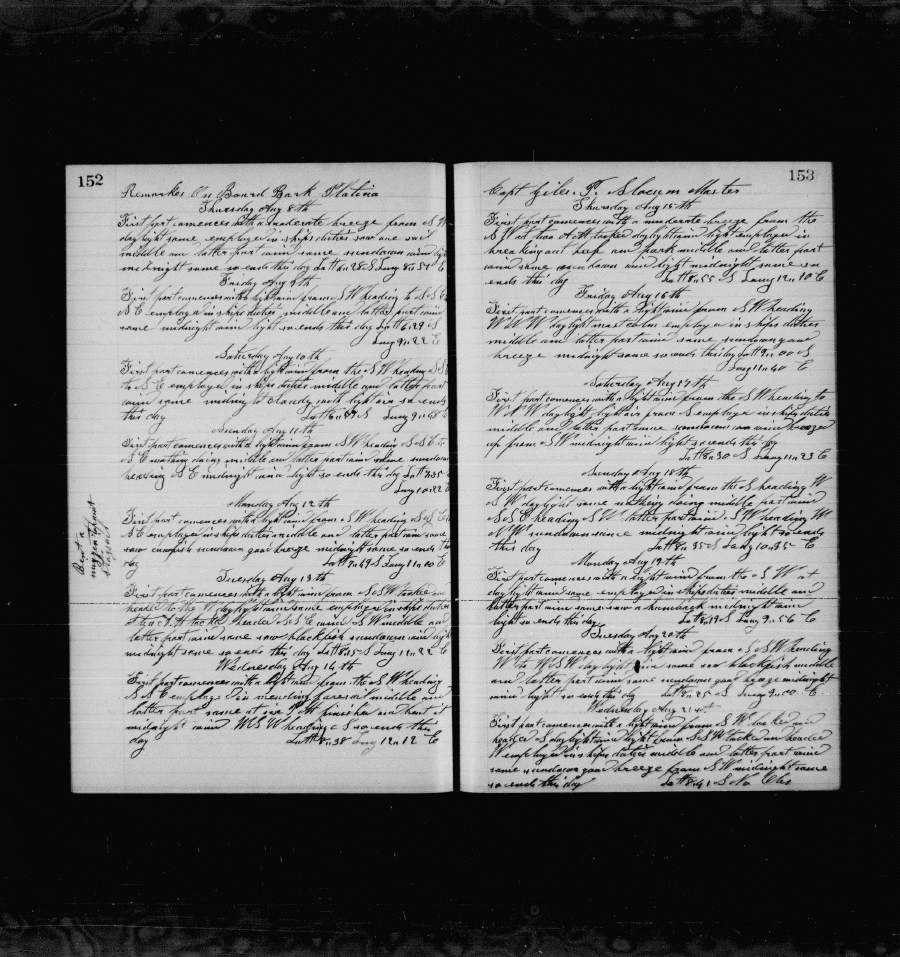 152
Remarkes On Board Bark Platina
Thursday Aug 8th
First part comences with a moderate breeze from S W
day light same employed in ships duties saw one sail
middle and latter part wind same sundown wind light
midnight same so ends this day Latt 6n28 S Long 8n 51 E
Friday Aug 9th
First part comences with light wind from S W heading to S S E
S E employed in ships duties middle and latter part wind
same midnight wind light so ends this day Latt 6n29 S
Long 9n22 E
Saturday Aug 10th
First part comences with a light wind from the S W heading S S E
to S E employed in ships duties middle and latter part
wind same midnight cloudy with light air so ends
this day Latt 6n57 S Long 9n48 E
Sunday Aug 11th
First part comences with a light wind from S W heading S S E to
S E nothing doing middle and latter part wind same sundown
heading S E midnight wind light so ends this day Latt 7n35 S
Long 10n22 E
Monday Aug 12th
First part comences with light wind from S W heading S S E to
S E employed in ships duties middle and latter part wind same
saw cowfish sundown good breeze midnight same so ends this
day Latt 7n49 S Long 11n00 E
Tuesday Aug 13th
First part comences with a light wind from S S W tacked and
headed to the W day light wind same employed in ships duties
at A M tacked headed S S E wind S W middle and
latter part wind same saw blackfish sundown wind light
midnight same so ends this day Latt 8n15 S Long 11n22 E
Wednesday Aug 14th
First part comences with a light wind from the S W heading
S S E employed in mending foresail middle and
latter part same at P M finished and bent it
midnight wind W S W heading S so ends this
day Latt 8n38 Long 12n12 E
Bent a
foresail
153
Capt Giles P. Slocum Master
Thursday Aug 15th
First part comences with a moderate breeze from the
S W at two A M tacked day light wind light employed in
breaking out beef and pork middle and latter part
wind same sundown wind light midnight same so
ends this day Latt 8n55 S Long 12n10 E
Friday Aug 16th
First part comences with a light wind from S W heading
W N W day light most calm employed in ships duties
middle and latter part wind same sundown good
breeze midnight same so ends this day Latt 9n00 S
Long 11n40 E
Saturday Aug 17th
First part comences with a light wind from the S W heading to
W N W day light light air from S employed in ships duties
middle and latter part same sundown wind breezed
up from S W midnight wind light so ends this day
Latt 8n30 S Long 11n23 E
Sunday Aug 18th
First part comences with a light wind from the S heading W
S W day light same nothing doing middle part wind
S S E heading S W latter part wind S W heading W
N W sundown same midnight wind light so ends
this day Latt 8n35 S Long 10n35 E
Monday Aug 19th
First part comences with a light wind from the S W at
day light wind same employed in ships duties middle and
latter part wind same saw a humback midnight wind
light so ends this day Latt 8n19 S Long 9n56 E
Tuesday Aug 20th
First part comences with a light wind from S S W heading
W to W S W day light wind same saw blackfish middle
and latter part wind same sundown good breeze midnight
wind light so ends this day Latt 8n25 S Long 9n00 E
Wednesday Aug 21st
First part comences with a light wind from S W tacked and
headed S day light wind light from S S W tacked and headed
W employed in ships duties middle and latter part wind
same sundown good breeze from S W midnight same
so ends this day Latt 8n41 S No Obs